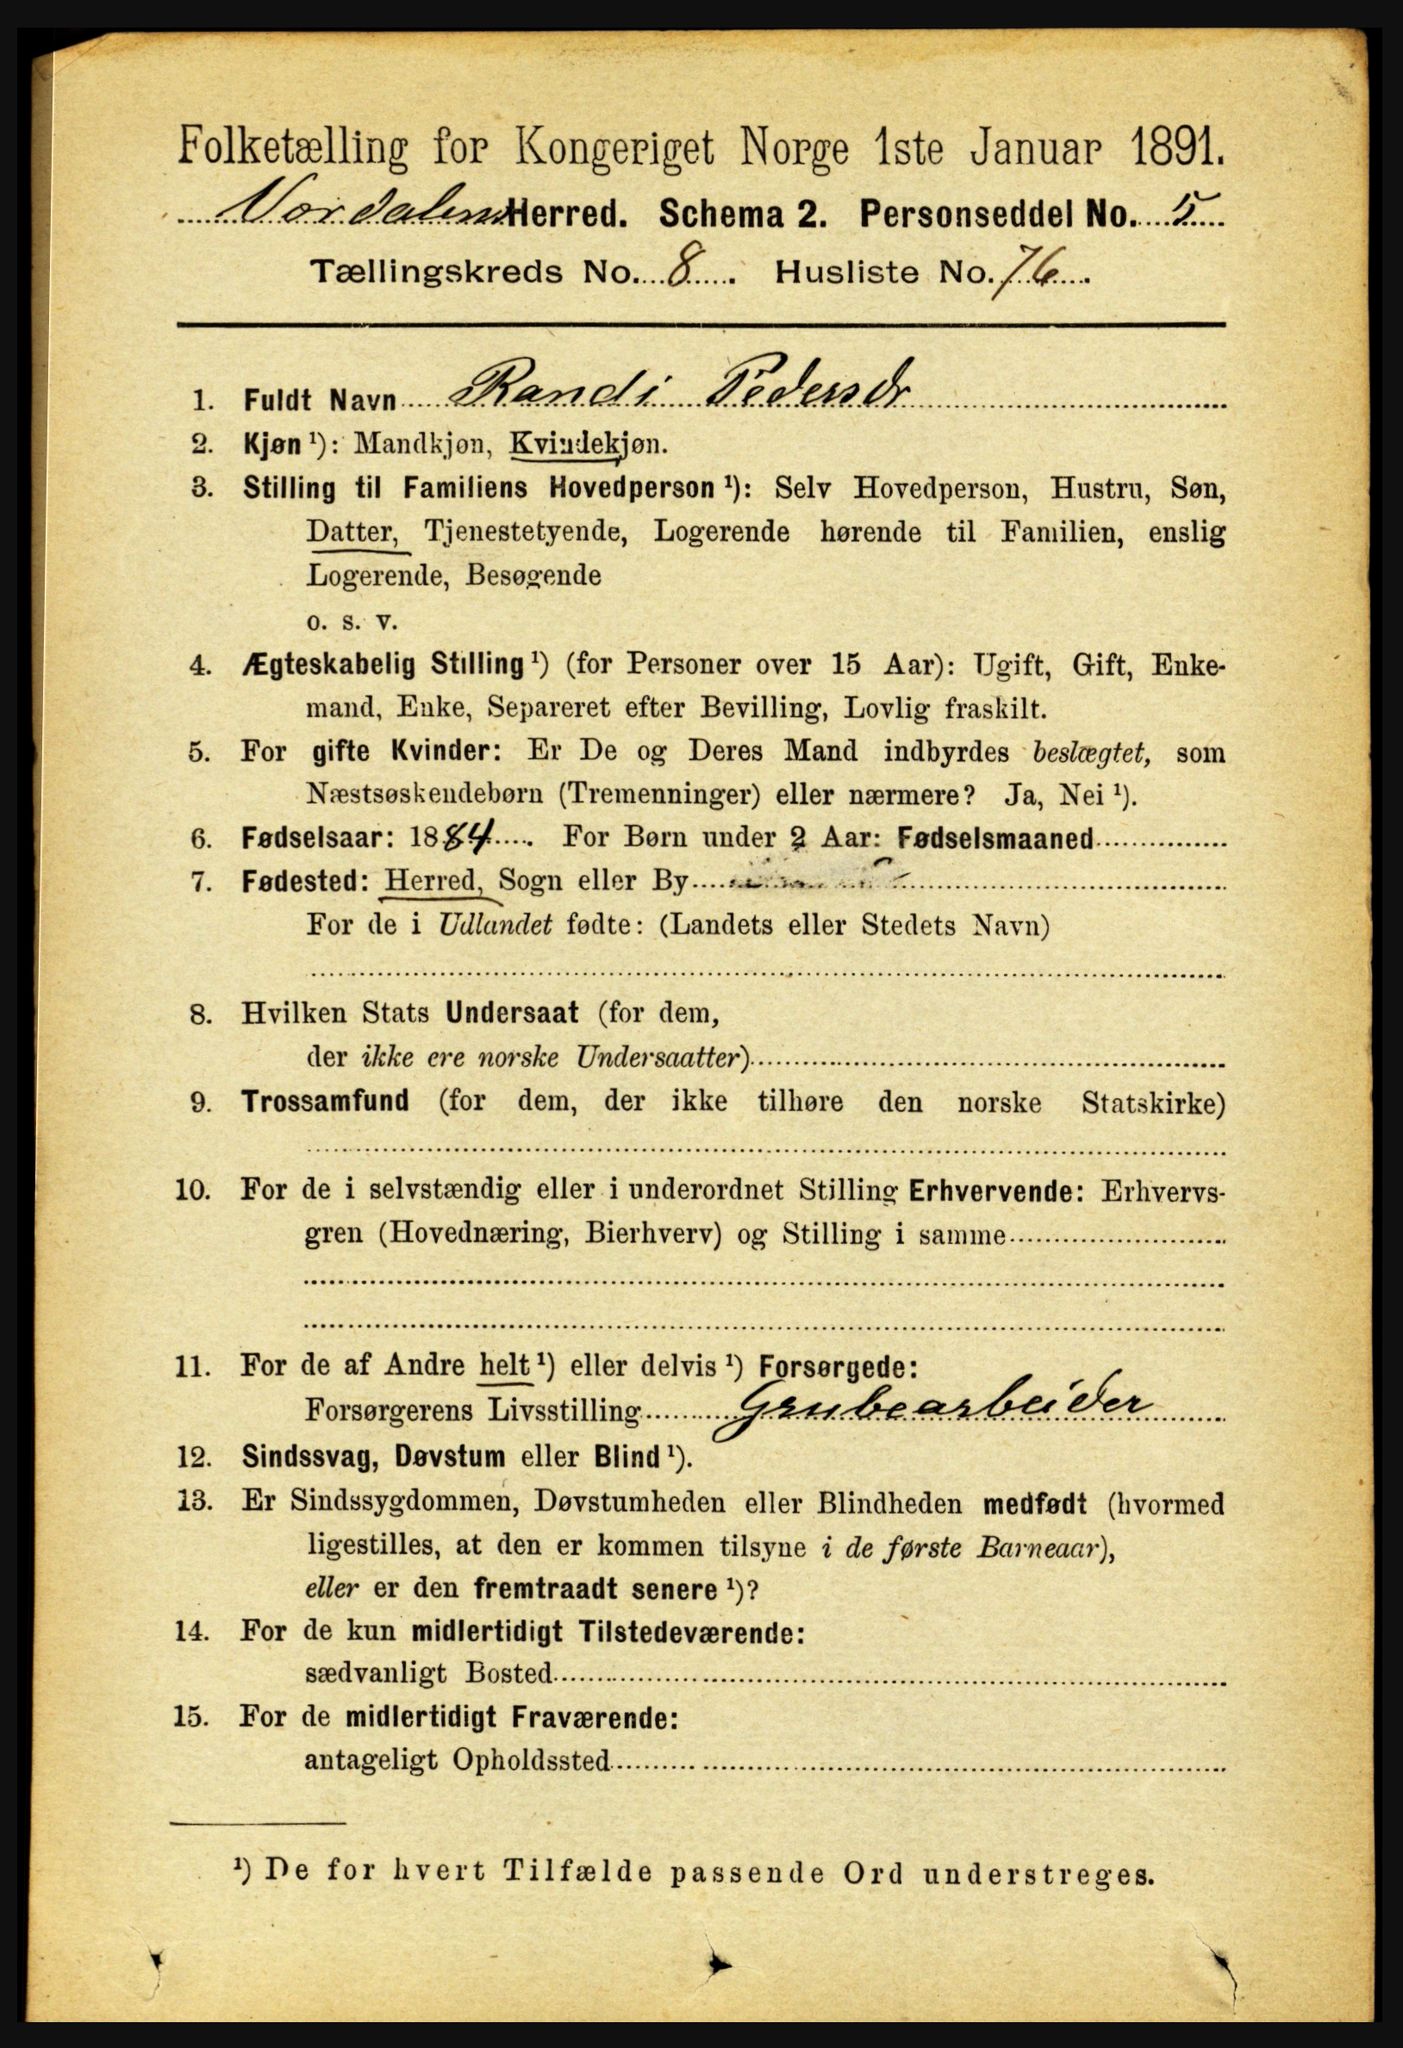 Folketælling for Kongeriget Norge 1ste Januar 1891.
Nordalens Herred. Schema 2. Personseddel No. 5
Tællingskreds No. 8. Husliste No. 76.
1. Fuldt Navn Randi Pedersdr
2. Kjøn ¹): Mandkjøn, Kvindekjøn.
3. Stilling til Familiens Hovedperson ¹): Selv Hovedperson, Hustru, Søn,
Datter, Tjenestetyende, Logerende hørende til Familien, enslig
Logerende, Besøgende
o. s. v.
4. Ægteskabelig Stilling ¹) (for Personer over 15 Aar): Ugift, Gift, Enke-
mand, Enke, Separeret efter Bevilling, Lovlig fraskilt.
5. For gifte Kvinder: Er De og Deres Mand indbyrdes beslægtet, som
Næstsøskendebørn (Tremenninger) eller nærmere? Ja, Nei ¹).
6. Fødselsaar: 1884. For Børn under 2 Aar: Fødselsmaaned
7. Fødested: Herred, Sogn eller By
For de i Udlandet fødte: (Landets eller Stedets Navn)
8. Hvilken Stats Undersaat (for dem,
der ikke ere norske Undersaatter)
9. Trossamfund (for dem, der ikke tilhøre den norske Statskirke)
10. For de i selvstændig eller i underordnet Stilling Erhvervende: Erhvervs-
gren (Hovednæring, Bierhverv) og Stilling i samme
11. For de af Andre helt ¹) eller delvis ¹) Forsørgede:
Forsørgerens Livsstilling Grubearbeider
12. Sindssvag, Døvstum eller Blind ¹).
13. Er Sindssygdommen, Døvstumheden eller Blindheden medfødt (hvormed
ligestilles, at den er kommen tilsyne i de første Barneaar),
eller er den fremtraadt senere ¹)?
14. For de kun midlertidigt Tilstedeværende:
sædvanligt Bosted
15. For de midlertidigt Fraværende:
antageligt Opholdssted
¹) De for hvert Tilfælde passende Ord understreges.